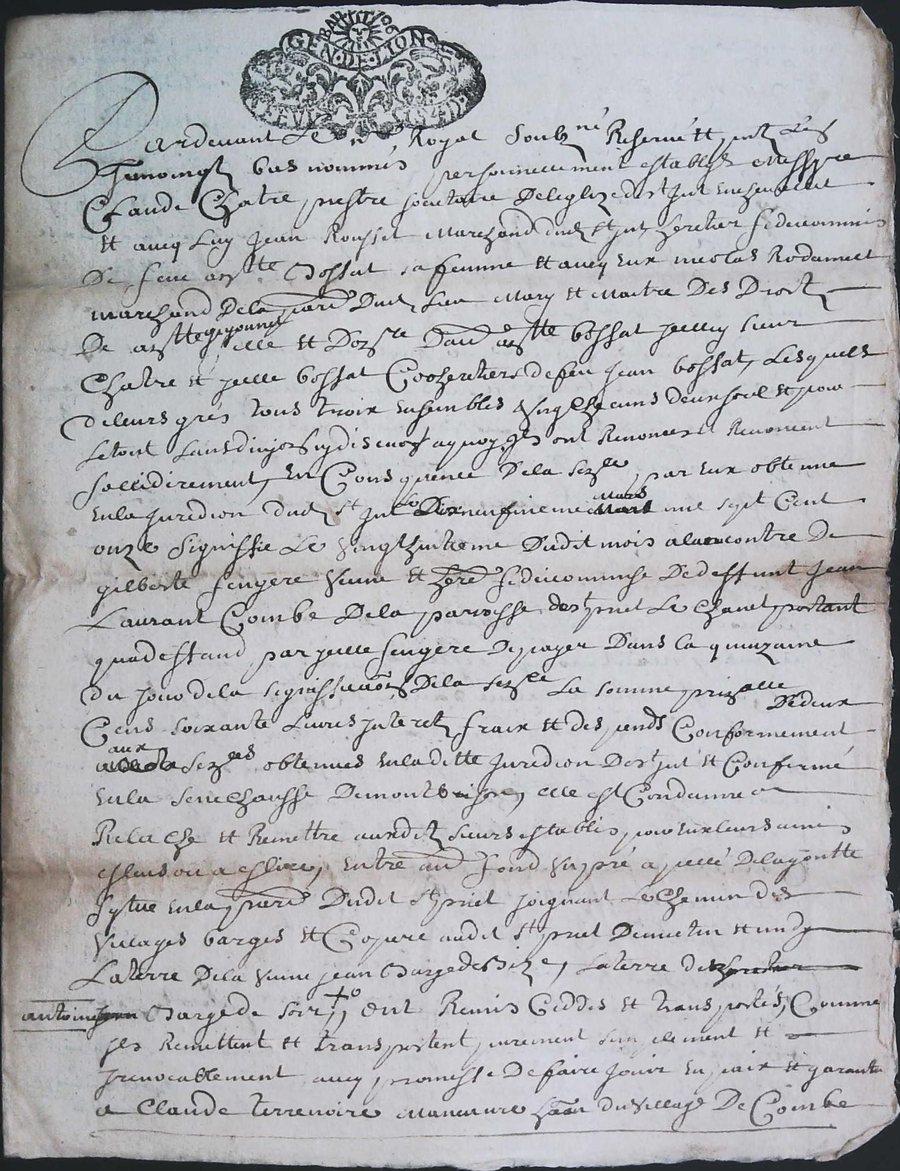 GEN·DE·LION
Pardevant Le nre Royal Soubzné Reservé Et pnt Les
Temoingz bas nommés personnellement establys Messyre
Claude Chatre prestre societaire De leglize de st jut Ensemblemt
Et avecq Luy Jean Rousset Marchand dud st jut heretier fideicommis
De feue antte Bossat sa femme Et avecq Eux nicolas Rodamet
marchand De la parr Dud Lieu Mary Et Maitre Des Droit
De antte Elle Et Dozre Dand antte bossat jcelluy sieur
Chatre Et jcelle bossat Cooheretiers de feu jean bossat, Lesquels
deleurs grés tous trois Ensembles Et ung Chacuns deux seul Et pour
Le tout sans division ny discution aquoy jls ont Renoncer Et Renoncent
sollidèrement, En Consquence De la Sezce par Eux obtenue
En la juridion dud st jut Le Dixneufvieme Mars mil sept Cent
onze signiffie Le vingthuitieme Dudit mois alancontre De
gilberte fougere veuve Et here fideicommise De deffunt jean
Laurant Combe De la parroisse de st priet La Chanet portant
qua deffaud par jcelle fougère De payer Dans la quinzaine
Du jour de la signiffication De la Sezce La somme prizalle De deux
Cens soixante Livres jnteretz fraix Et despends Conformement
aux Sezces obtenues En la ditte juridion De st jut Et Confirmé
En la Senechausse De montbrison, elle est Condamnée a
Relache Et Remettre ausdit sieurs Establis, pour Eux leurs amis
esleus ou a eslire, Entre aud fond un pré apellé De la goutte
sytué En la parr Dudit st priet joignant Le Chemin des
Villages barges Et Coyere audit st priet De matin Et midy
La terre De la veuve jean Barge de bize, La terre de
antoine Barge de soir, ont Remis Ceddés Et transportés, Comme
jls Remettent Et transportent purement simplement Et
jrrevocablement avecq promesse De faire jouir En paix Et garantir
a Claude terrenoire Maneuvre han du village De Combe